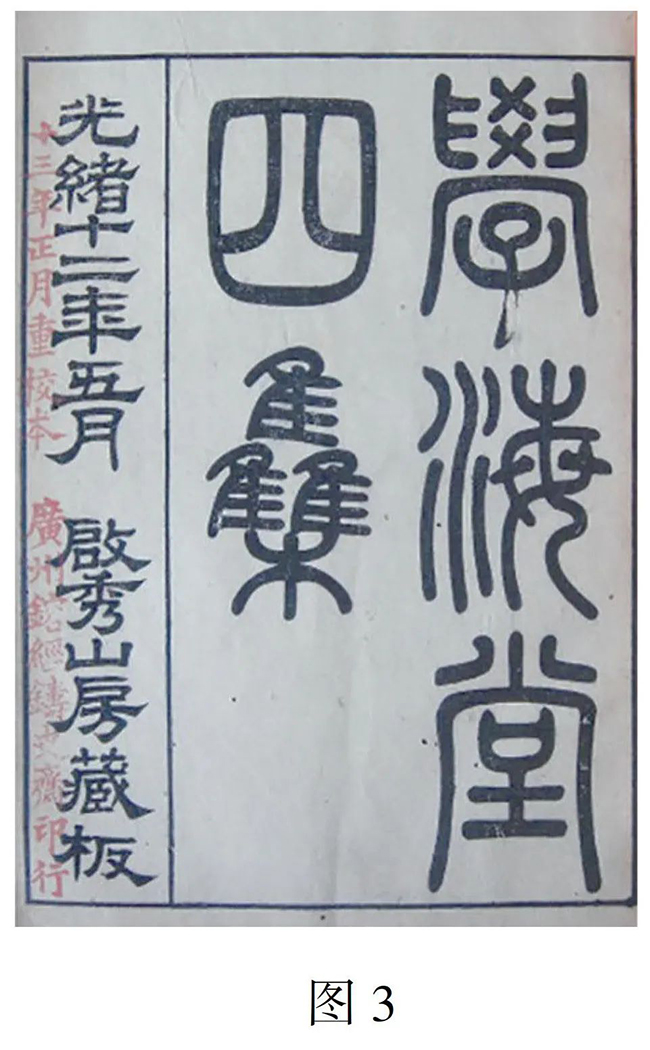 學海堂
四集
光緒十二年五月 啟秀山房藏板
十三年正月重校本 廣州鎔經鑄史齋印行
图 3